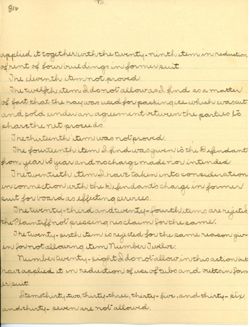 816
applied it together with the twenty-ninth item in reduction
of rent of four buildings in former suit
The eleventh item not proved
The twelfth item I do not allow as I find as a matter
of fact that the hay was used for packing ice which was cut
and sold under an agreement between the parties to
share the net proceeds
The thirteenth item was not proved.
The fourteenth item I find was given to the Defendant
from year to year and no charge made nor intended
The twentieth item I have taken into consideration
in connection with the Defendant's charge in former
suit for board as affecting services.
The twenty-third and twenty-fourth items are rejected
the Plaintiff not pressing his claim for the same.
The twenty-sixth item is rejected for the same reason giv-
en for not allowing item Number Twelve
Number twenty-eight I do not allow in this action but
have applied it in reduction of use of and in for-
mer suit
Items thirty-two, thirty-three, thirty-five, and thirty-six
and thirty-seven are not allowed.